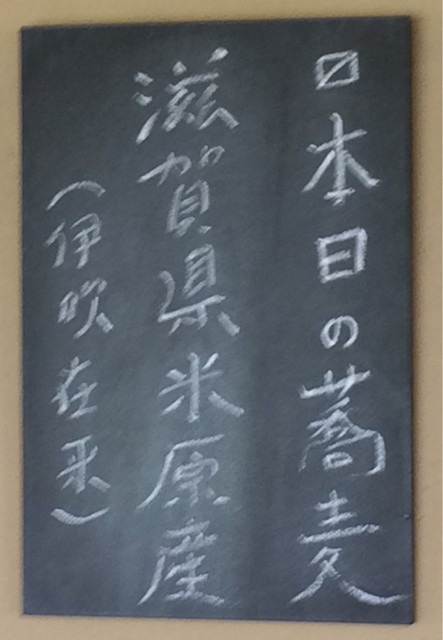 本日の蕎麦
滋賀県米原産
（伊吹在来）